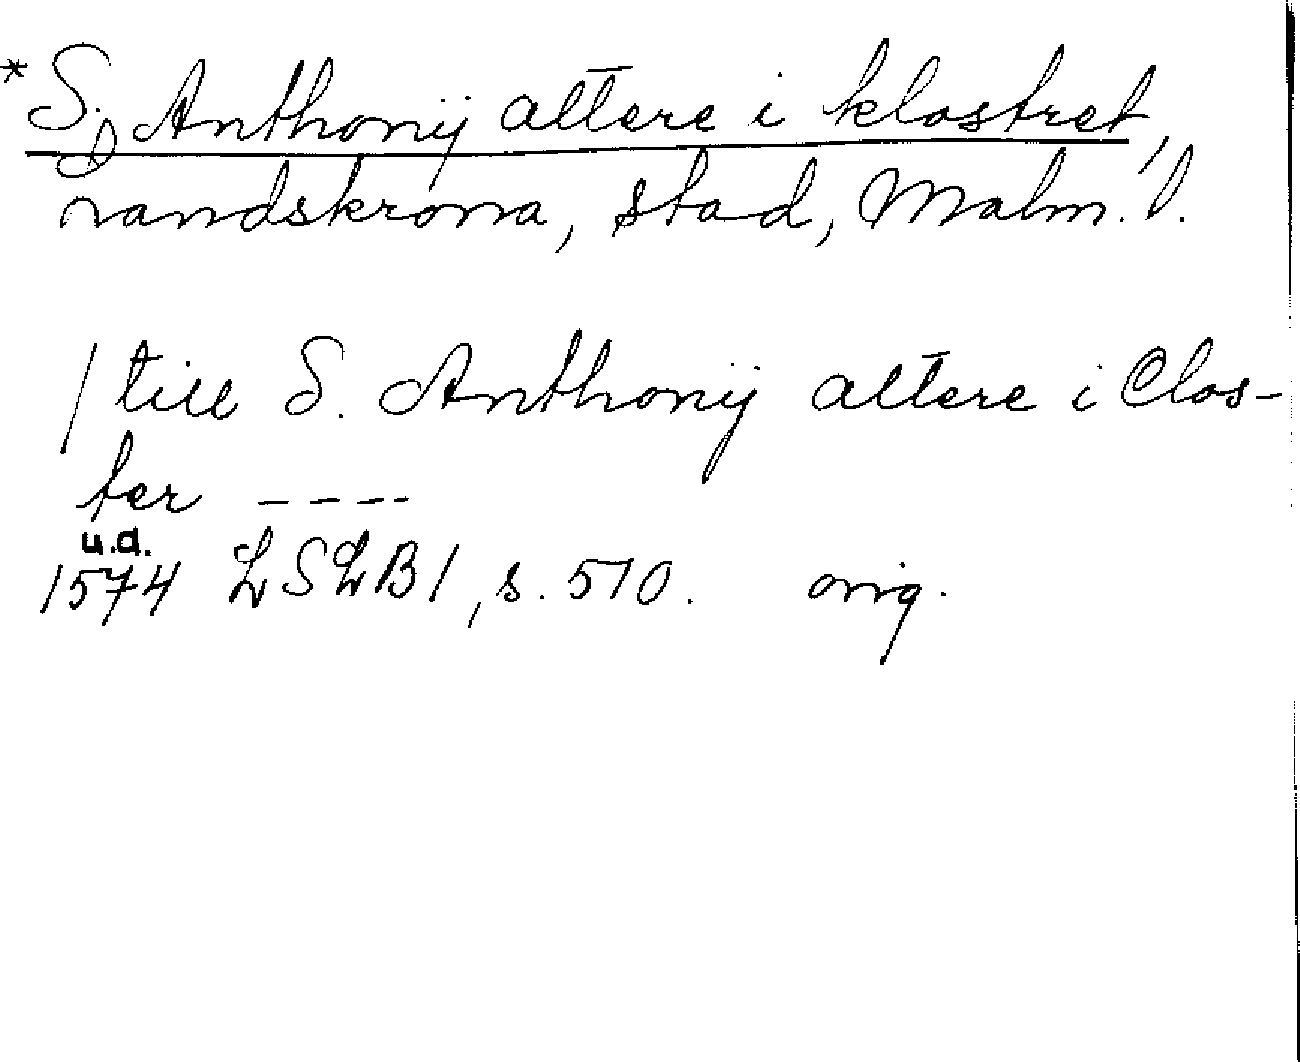 *S. Anthonij altere i klostret,
Landskrona, stad, Malm. l.
/ till S. Anthonij altere i Clos-
ter ----
u.d.
1574 LSLB1, s. 510. orig.